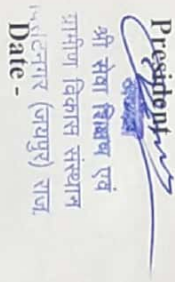 President
श्री सेवा शिक्षण एवं
ग्रामीण विकास संस्थान
(जयपुर) राज.
Date -